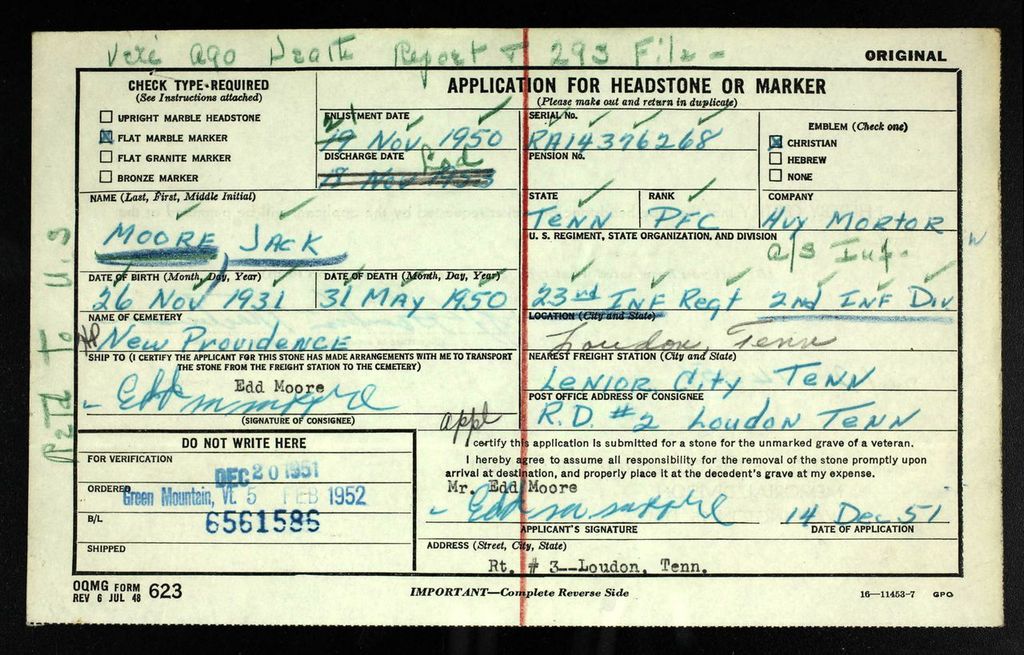 Veri AGO Death Report + 293 File -
ORIGINAL
CHECK TYPE-REQUIRED
(See Instructions attached)
UPRIGHT MARBLE HEADSTONE
FLAT MARBLE MARKER
FLAT GRANITE MARKER
BRONZE MARKER
APPLICATION FOR HEADSTONE OR MARKER
(Please make out and return in duplicate)
ENLISTMENT DATE
19 Nov 1950
DISCHARGE DATE
18 Nov 1953
SERIAL No.
RA14376268
PENSION No.
EMBLEM (Check one)
CHRISTIAN
HEBREW
NONE
NAME (Last, First, Middle Initial)
MOORE JACK
STATE
TENN
RANK
PFC
COMPANY
Hvy Mortor
U. S. REGIMENT, STATE ORGANIZATION, AND DIVISION
Inf.
23rd INF Regt 2nd INF Div
DATE OF BIRTH (Month, Day, Year)
26 Nov 1931
DATE OF DEATH (Month, Day, Year)
31 May 1950
NAME OF CEMETERY
New Providence
LOCATION (City and State)
Loudon, Tenn
SHIP TO (I CERTIFY THE APPLICANT FOR THIS STONE HAS MADE ARRANGEMENTS WITH ME TO TRANSPORT
THE STONE FROM THE FREIGHT STATION TO THE CEMETERY)
Edd Moore
(SIGNATURE OF CONSIGNEE)
NEAREST FREIGHT STATION (City and State)
Lenior City Tenn
POST OFFICE ADDRESS OF CONSIGNEE
R.D. #2 Loudon Tenn
appl
DO NOT WRITE HERE
FOR VERIFICATION
DEC 20 1951
ORDERED
Green Mountain, Vt. 5 FEB 1952
B/L
6561586
SHIPPED
I certify this application is submitted for a stone for the unmarked grave of a veteran.
I hereby agree to assume all responsibility for the removal of the stone promptly upon
arrival at destination, and properly place it at the decedent's grave at my expense.
Mr. Edd Moore
14 Dec 51
APPLICANT'S SIGNATURE
DATE OF APPLICATION
ADDRESS (Street, City, State)
Rt. # 3--Loudon, Tenn.
OQMG FORM 623
REV 6 JUL 48
IMPORTANT—Complete Reverse Side
16—11453-7 GPO